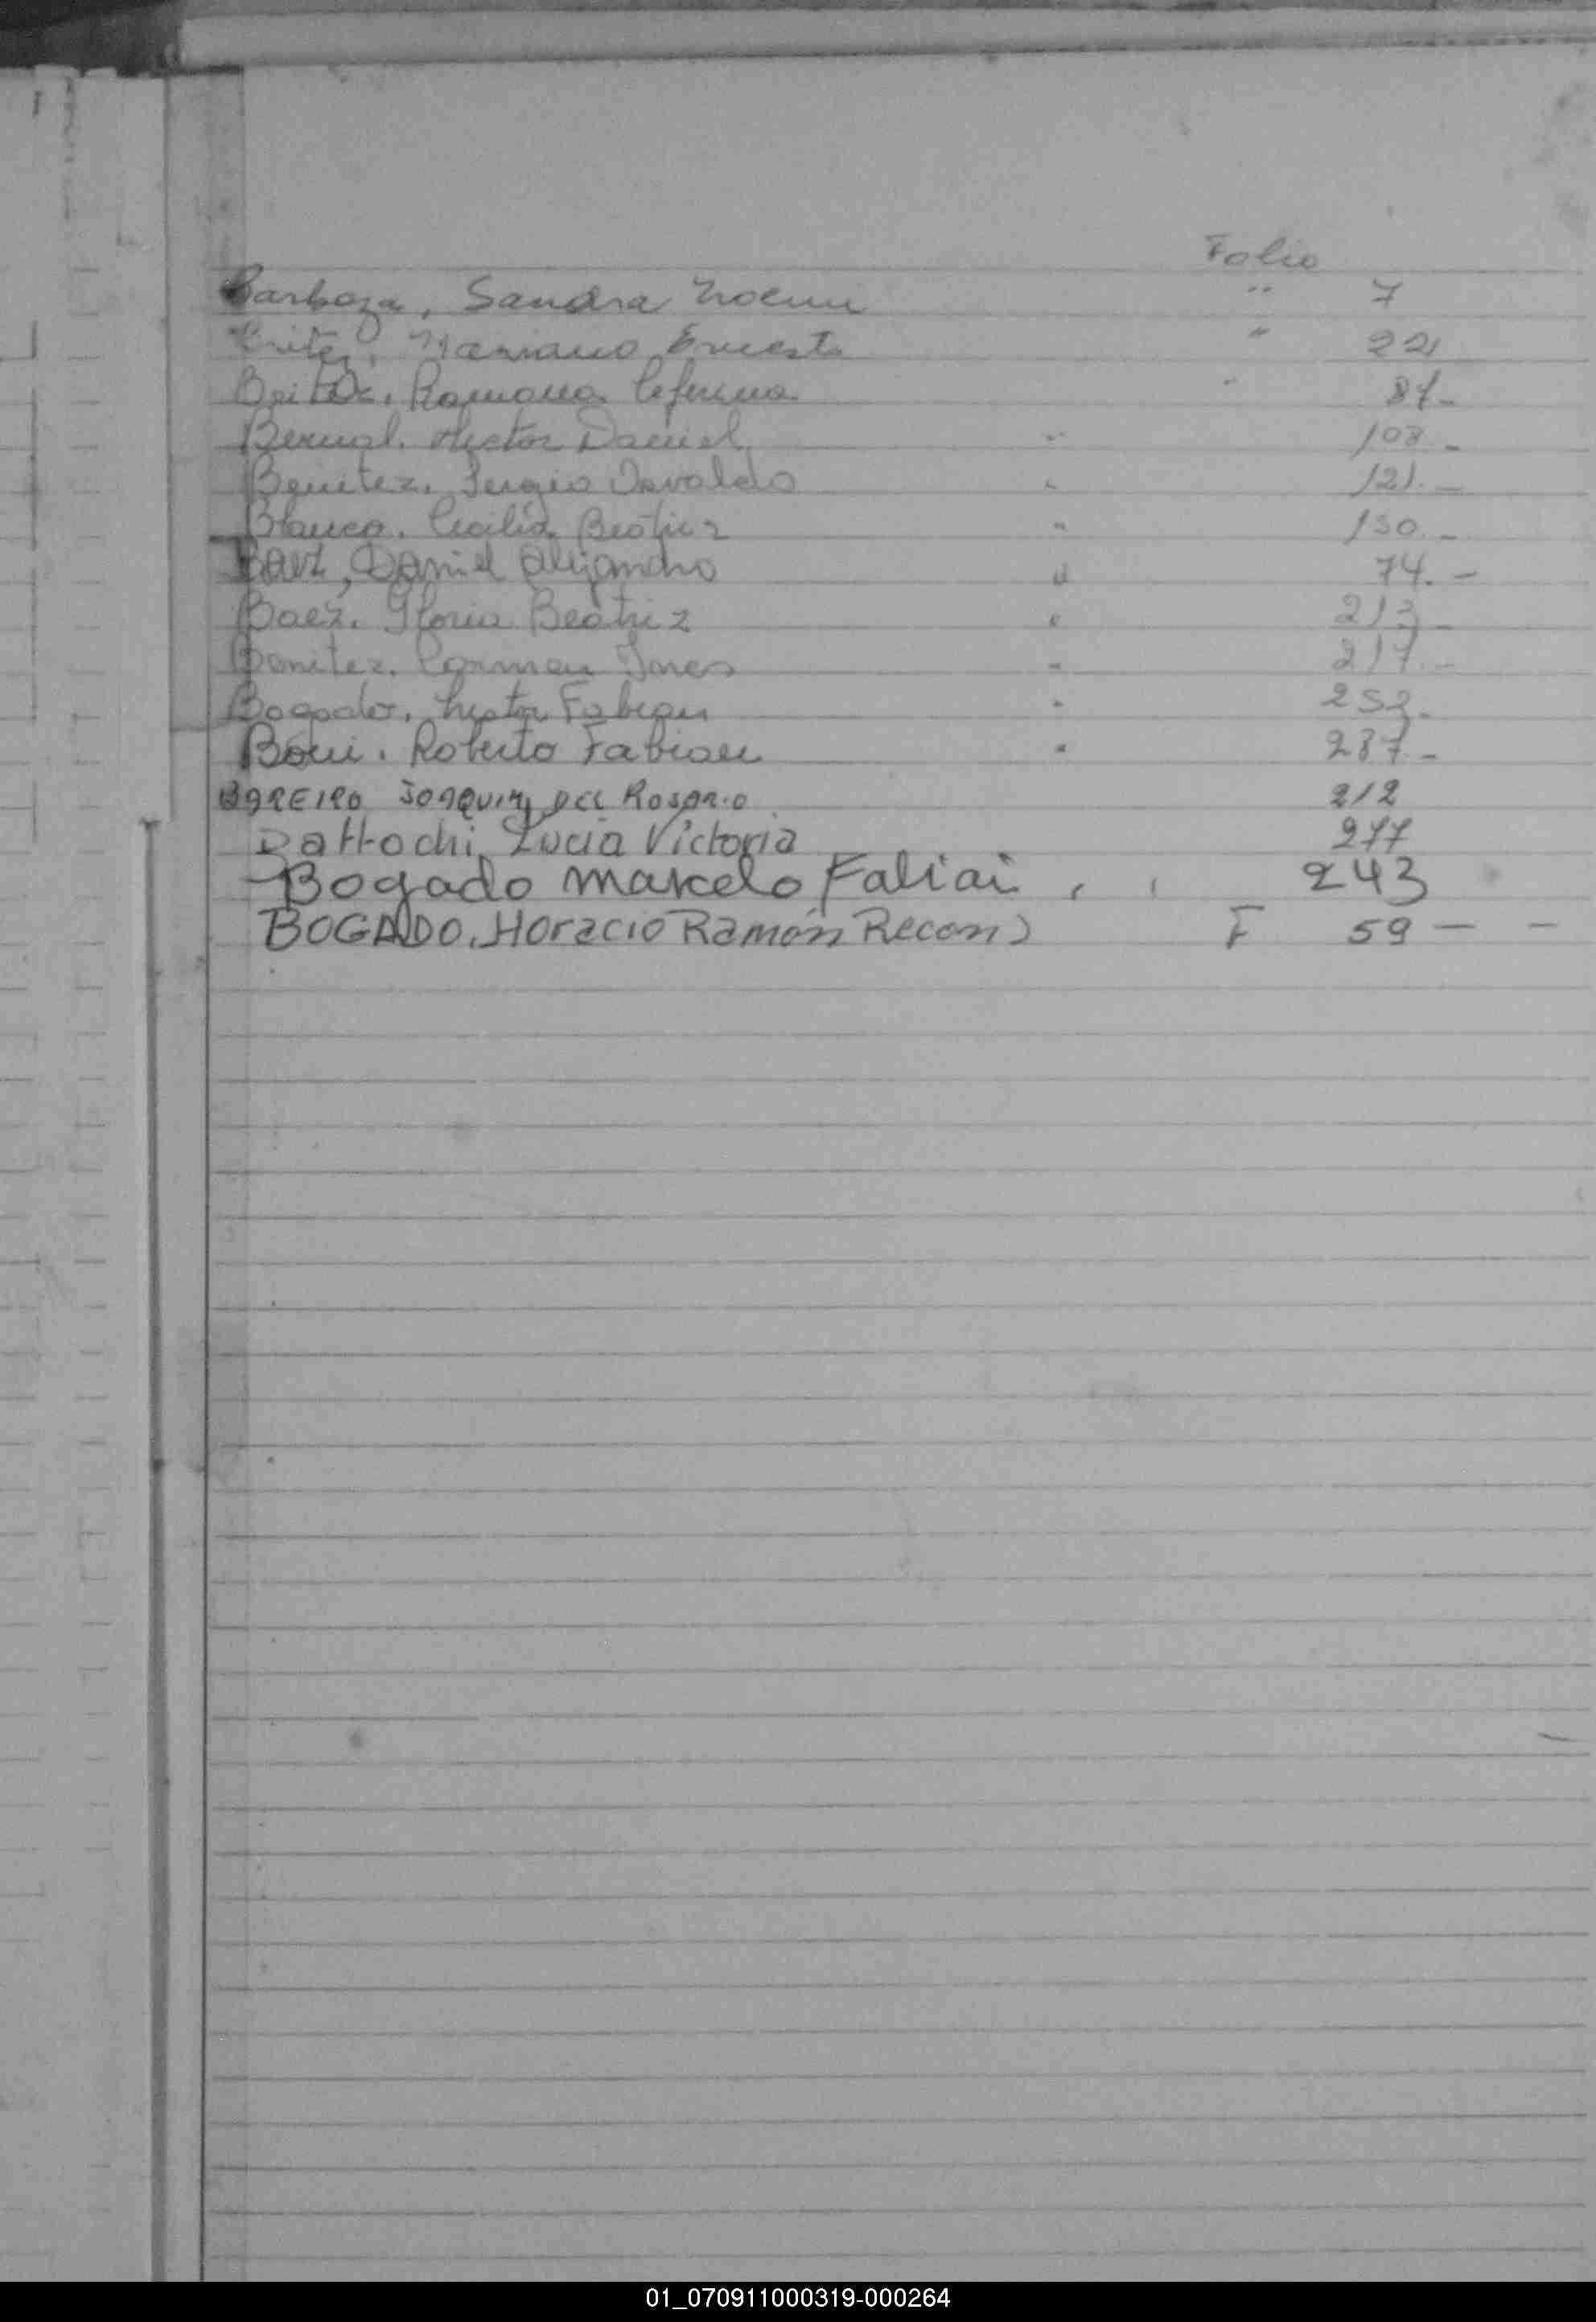 Folio
Barboza, Sandra Noemi " 7
Britez, Mariano Ernesto " 221
Britez, Ramona Ceferina " 87-
Bernal. Hector Daniel " 108.-
Benitez. Sergio Osvaldo " 121.-
Blanco. Cecilia Beatriz " 150.-
Baez, Daniel Alejandro " 74.-
Baez. Gloria Beatriz " 213-
Benitez. Carmen Ines " 217.-
Bogado. Fabian 252.-
Boni. Roberto Fabian " 287.-
BAREIRO JOAQUIN DEL ROSARIO 212
Battochi Lucia Victoria 277
Bogado Marcelo Fabian , , 243
BOGADO, Horacio Ramón Recon) F 59 — —
01_070911000319-000264